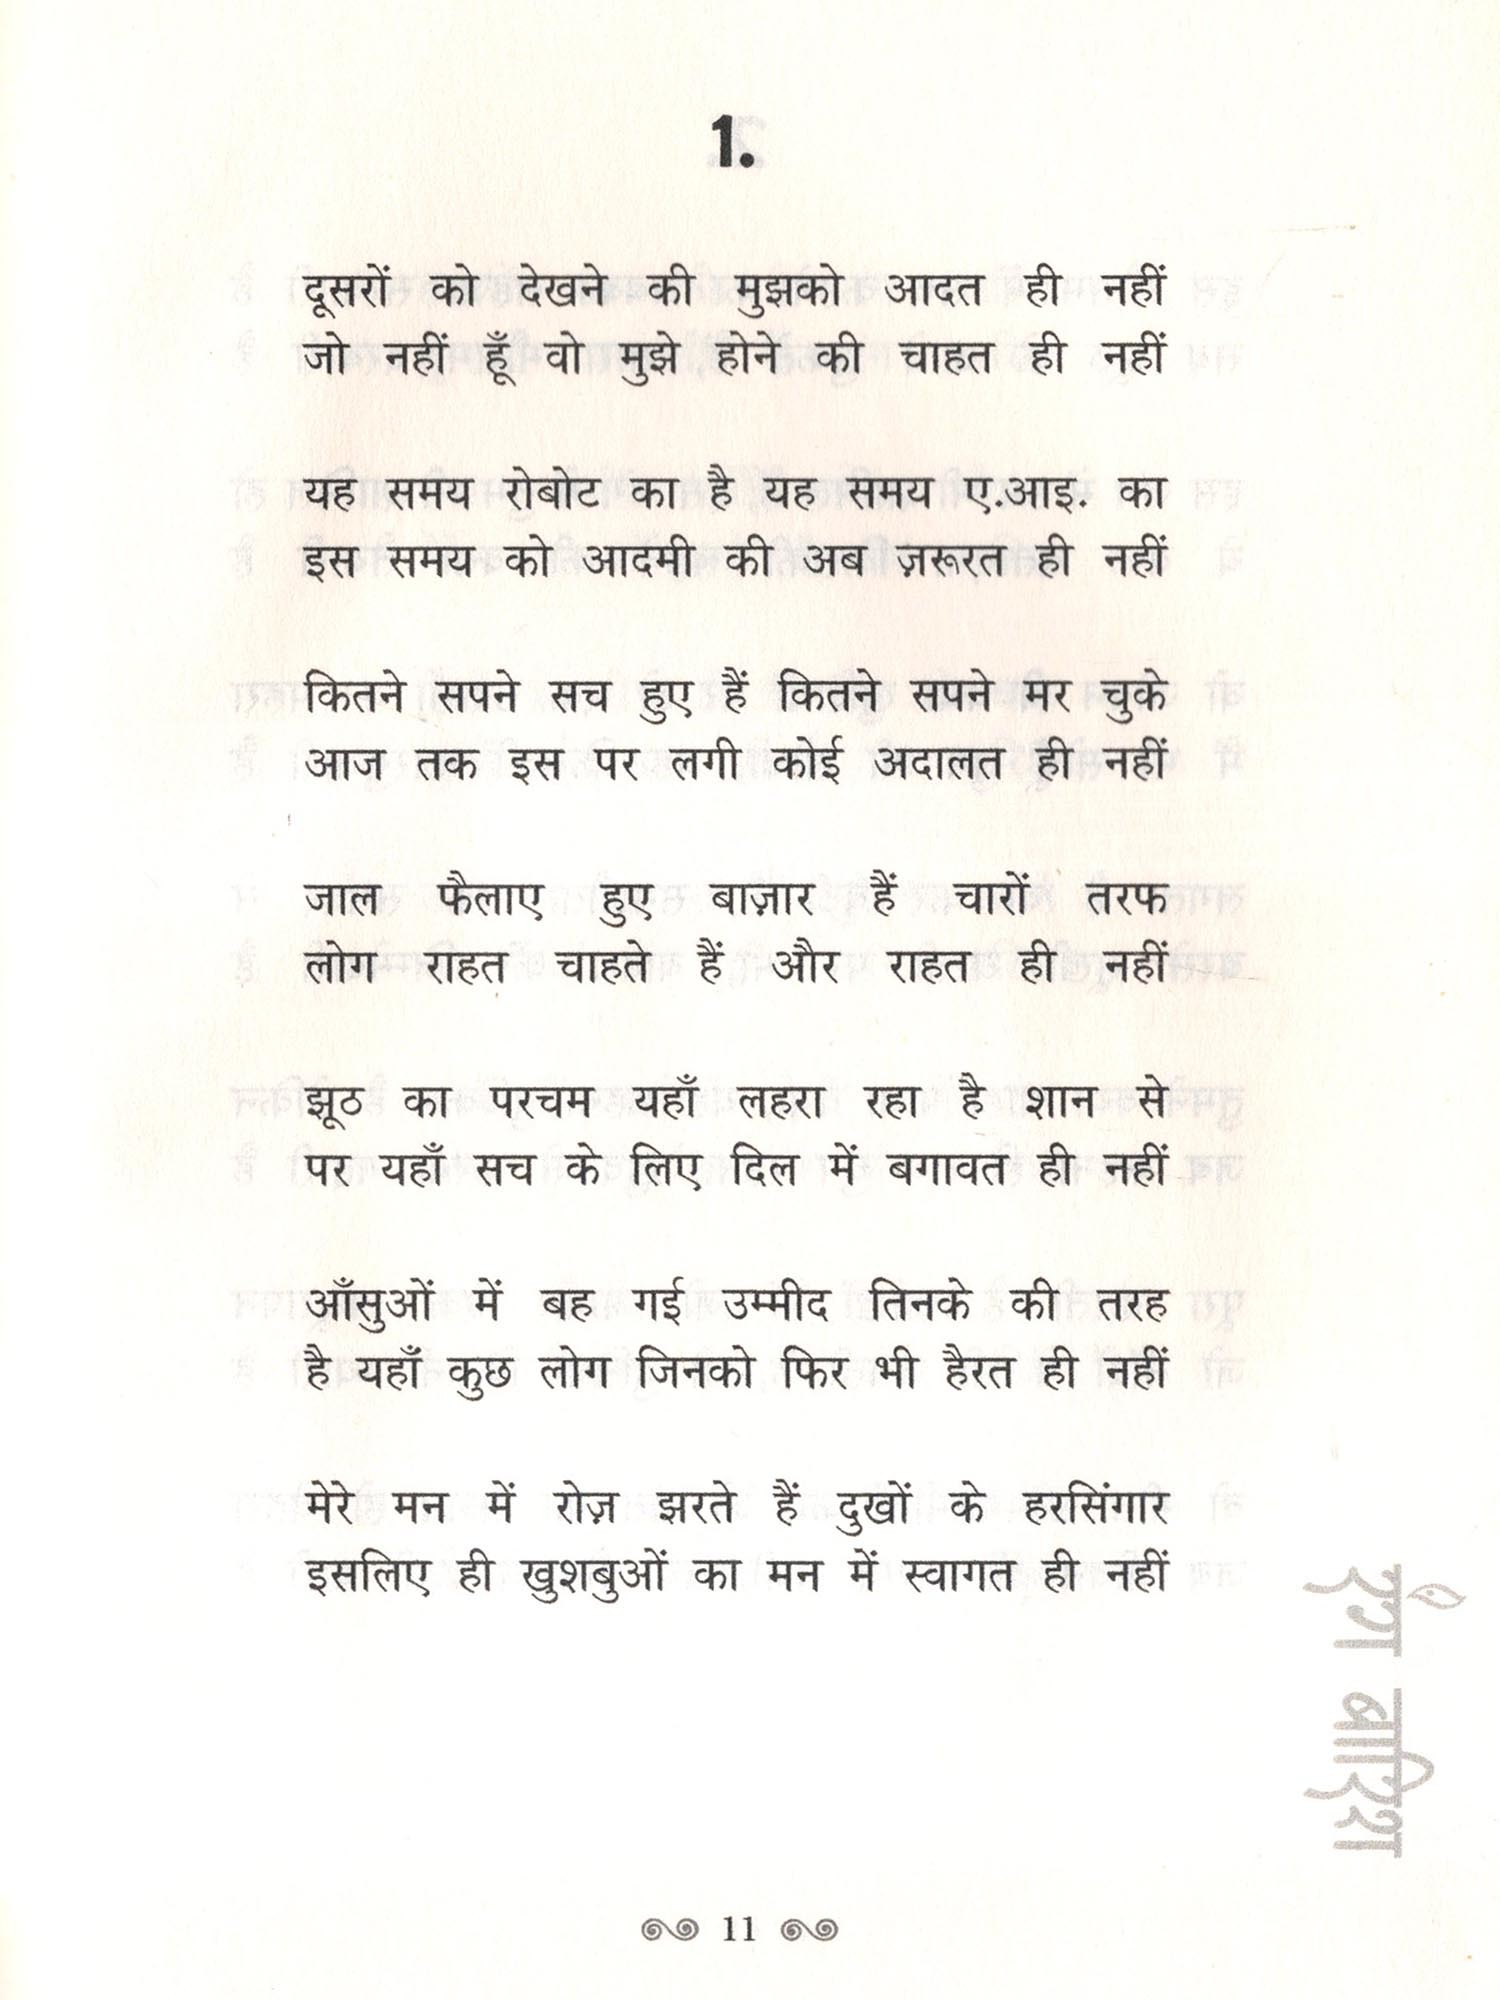 1.
दूसरों को देखने की मुझको आदत ही नहीं
जो नहीं हूँ वो मुझे होने की चाहत ही नहीं
यह समय रोबोट का है यह समय ए.आइ. का
इस समय को आदमी की अब ज़रूरत ही नहीं
कितने सपने सच हुए हैं कितने सपने मर चुके
आज तक इस पर लगी कोई अदालत ही नहीं
जाल फैलाए हुए बाज़ार हैं चारों तरफ
लोग राहत चाहते हैं और राहत ही नहीं
झूठ का परचम यहाँ लहरा रहा है शान से
पर यहाँ सच के लिए दिल में बगावत ही नहीं
आँसुओं में बह गई उम्मीद तिनके की तरह
है यहाँ कुछ लोग जिनको फिर भी हैरत ही नहीं
मेरे मन में रोज़ झरते हैं दुखों के हरसिंगार
इसलिए ही खुशबुओं का मन में स्वागत ही नहीं
रंग बारिश
11